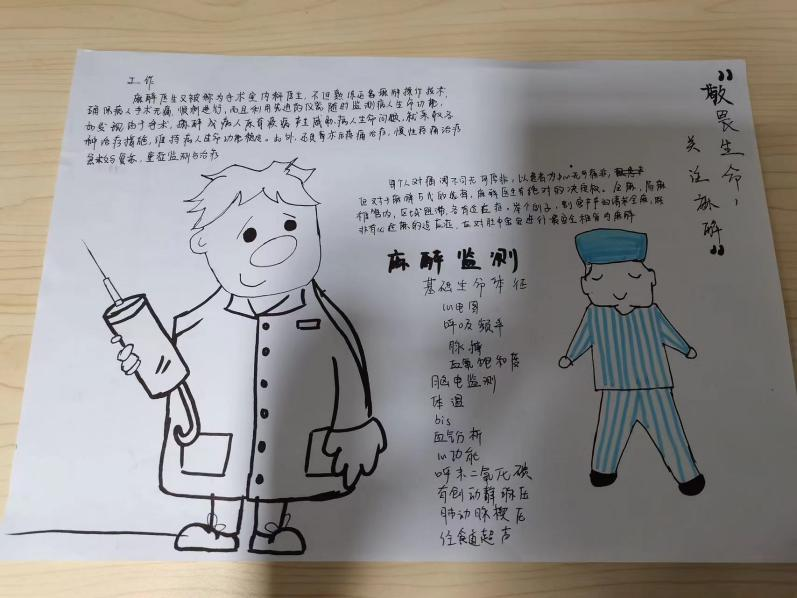 工作
麻醉医生又被称为手术室内科医生，不但熟练运用麻醉操作技术，
确保病人手术无痛、顺利进行，而且利用先进的仪器随时监测病人生命功能，
如发现由于手术，麻醉或病人原有疾病产生威胁病人生命问题，就采取各
种治疗措施，维持病人生命功能稳定。此外，还负责术后疼痛治疗，慢性疼痛治疗
急救复苏，重症监测与治疗
每个人对痛阈不同无可厚非，以患者为中心无可厚非，
但对于麻醉方式的选择，麻醉医生有绝对的决定权。全麻，局麻
椎管内，区域阻滞，各有适应症。举个例子，割包皮的请求全麻，既
非有必
麻醉监测
基础生命体征
心电图
呼吸频率
脉搏
血氧饱和度
脑电监测
体温
bis
血气分析
心功能
呼末二氧化碳
有创动静脉压
肺动脉楔压
经食道超声
"敬畏生命，
关注麻醉"